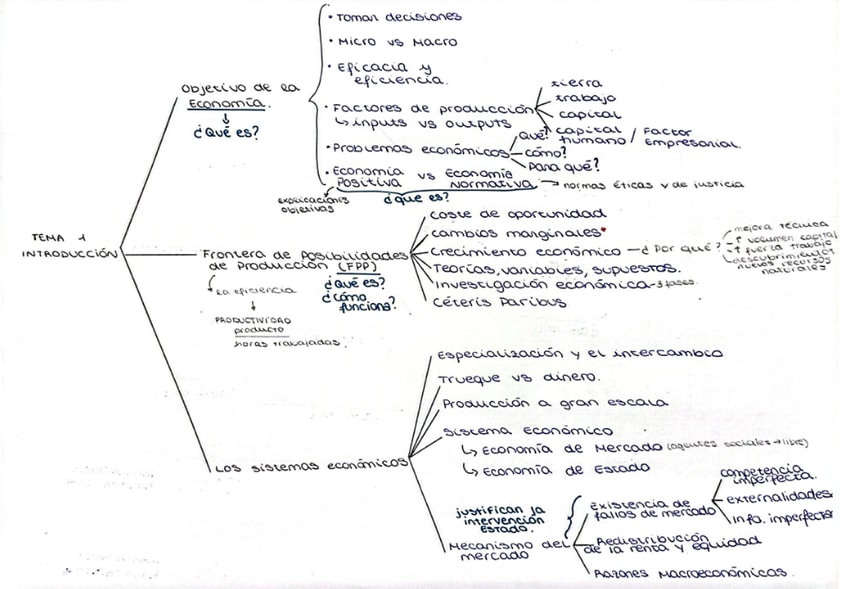 TEMA 1
INTRODUCCIÓN
Objetivo de la
Economía.
↓
¿Qué es?
· Tomar decisiones
· Micro vs Macro
· Eficacia y
eficiencia.
· Factores de producción
↳ inputs vs outputs
tierra
trabajo
capital
capital
humano / Factor
Empresarial.
· Problemas económicos
Qué?
cómo?
Para qué?
· Economía vs Economía
Positiva Normativa → normas éticas y de justicia
explicaciones
objetivas
¿que es?
Frontera de Posibilidades
de Producción (FPP)
↳ la eficiencia
↓
PRODUCTIVIDAD
producto
horas trabajadas.
¿Qué es?
¿Cómo
funciona?
coste de oportunidad
cambios marginales
Crecimiento económico – ¿Por qué?
mejora técnica
↑ volumen capital
↑ fuerza trabajo
descubrimientos
nuevos recursos
naturales
Teorías, variables, supuestos.
Investigación económica-3 fases.
Céteris Paribus
Los sistemas económicos
Especialización y el intercambio
Trueque vs dinero.
Producción a gran escala
Sistema Económico
↳ Economía de Mercado (agentes sociales → libre)
↳ Economía de Estado
Mecanismo del
mercado
justifican la
intervención
estado.
Existencia de
fallos de mercado
competencia
imperfecta.
externalidades
Info. imperfecta
Redistribución
de la renta y equidad
Razones Macroeconómicas.